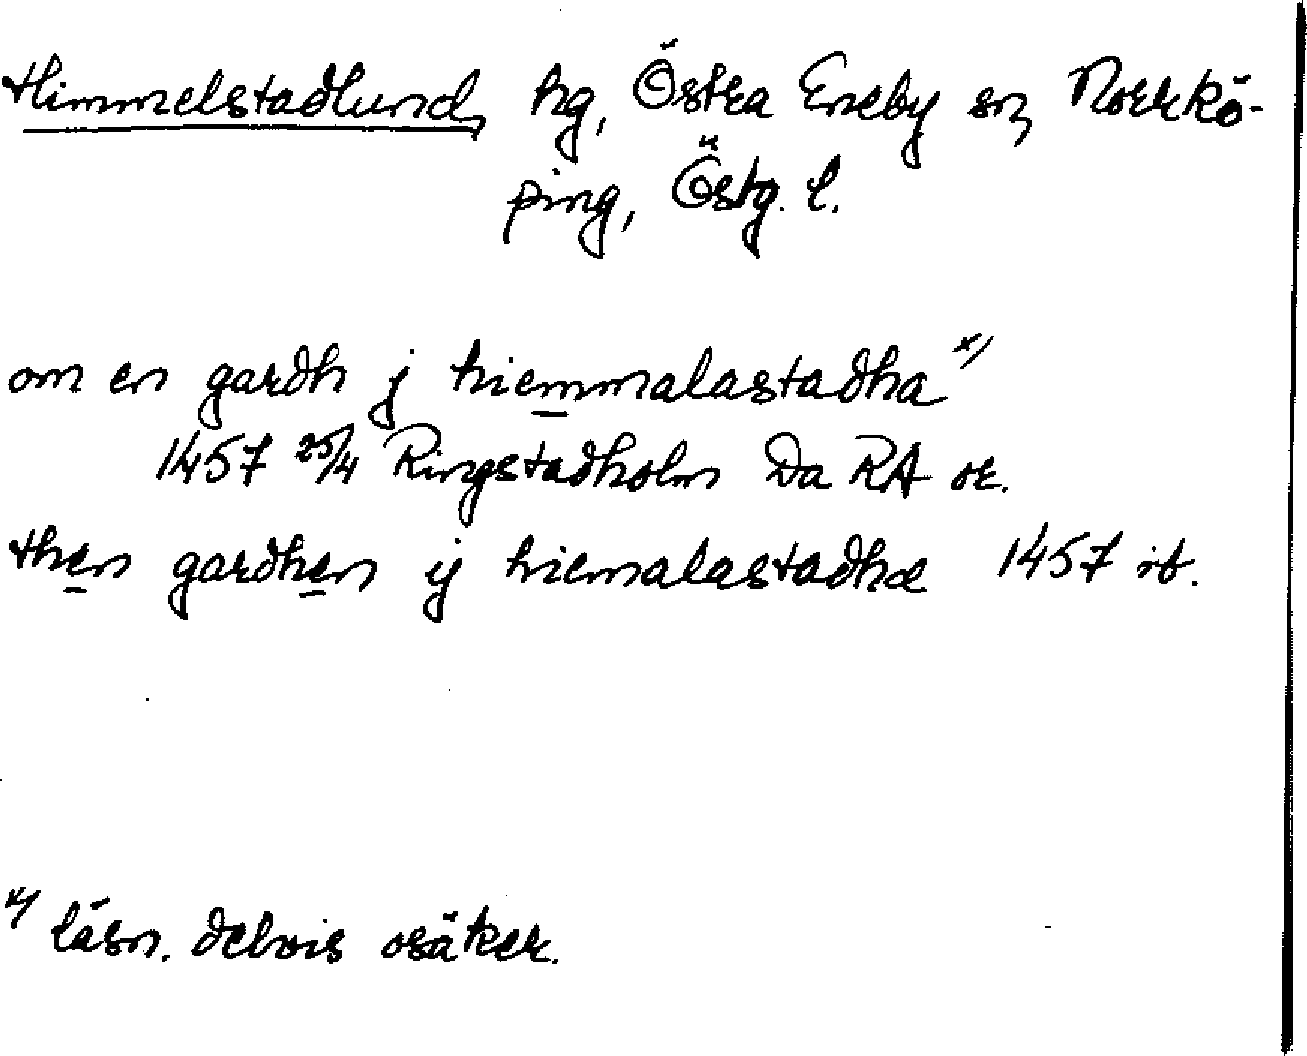 Himmelstadlund, hg, Östra Eneby sn, Norrkö-
ping, Östg. l.
om en gardh j hiemmalastadha x)
1457 25/4 Ringstadholm Da RA or.
then gardhen ij hiemalastadhæ 1457 ib.
x) läsn. delvis osäker.